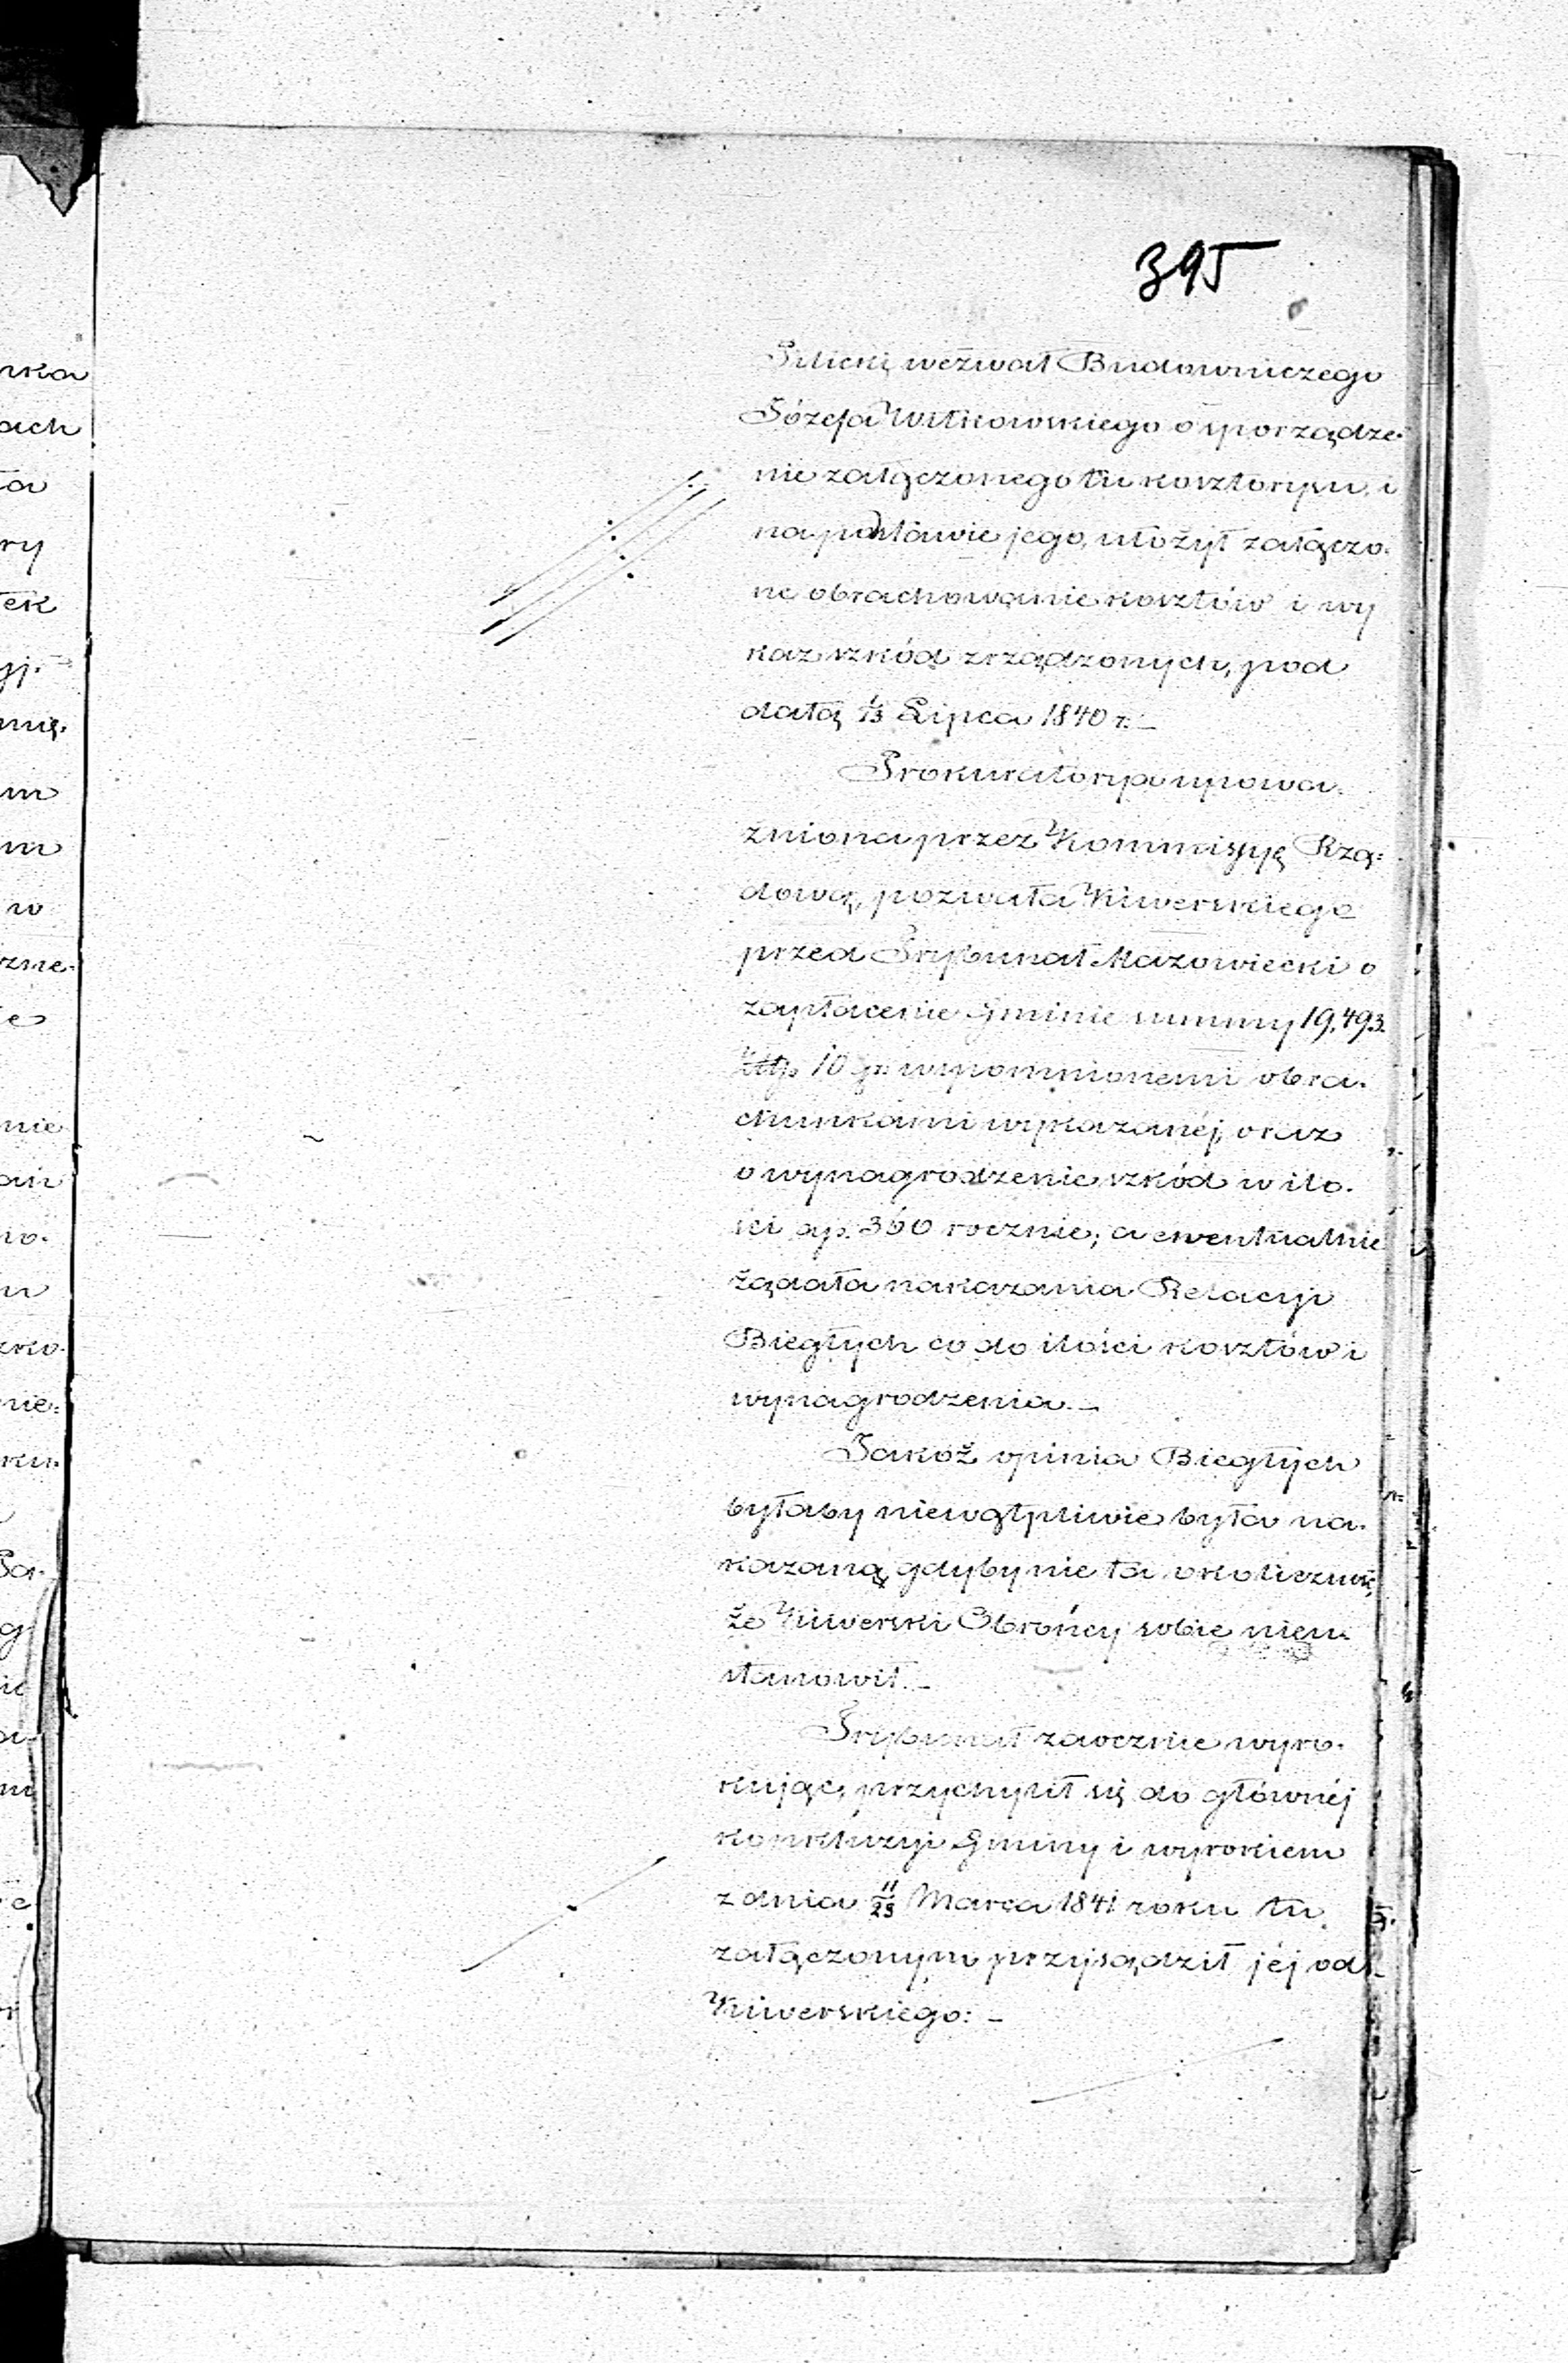 395
wezwał Budowniczego
Józefa Witkowskiego o sporządze-
nie załączonego tu kosztorysu, i
na podstawie jego, ułożył załączo-
ne obrachowanie kosztów i wy
kaz szkód zrządzonych, pod
datą 1/13 Lipca 1840 r. –
Prokuratorya upowa-
żniona przez Kommissyą Rzą-
dową, pozwała Kiwerskiego
przed Trybunał Mazowiecki o
zapłacenie Gminie summy 19,493.
złtp. 10 gr. wspomnionemi obra-
chunkami wykazanéj, oraz
o wynagrodzenie szkód w ilo-
ści zp. 360 rocznie; a ewentualnie
żądała nakazania Relacyi
Biegłych co do ilości kosztów i
wynagrodzenia. –
Jakoż opinia Biegłych
byłaby niewątpliwie była na-
kazaną, gdyby nie ta okoliczność,
że Kiwerski Obrońcy sobie nieu-
stanowił. –
Trybunał zaocznie wyro-
kując, przychylił się do głównéj
konkluzyi Gminy i wyrokiem
z dnia 11/23 Marca 1841 roku tu
załączonym przysądził jéj od
Kiwerskiego: –